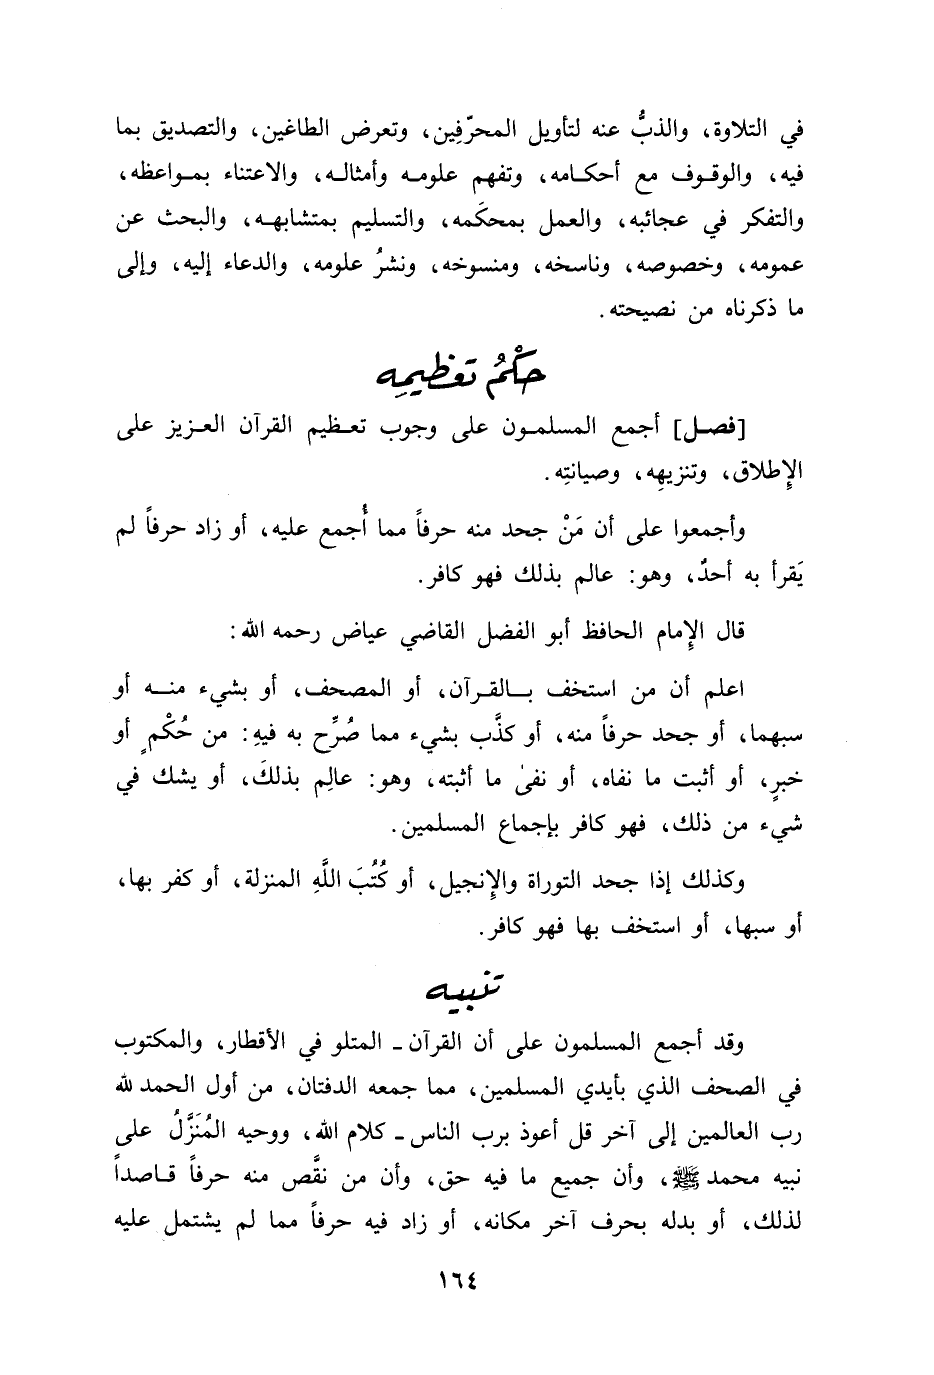 في التلاوة، والذبُّ عنه لتأويل المحرّفِين، وتعرض الطاغين، والتصديق بما
فيه، والوقوف مع أحكامه، وتفهم علومه وأمثاله، والاعتناء بمواعظه،
والتفكر في عجائبه، والعمل بمحكَمه، والتسليم بمتشابهه، والبحث عن
عمومه، وخصوصه، وناسخه، ومنسوخه، ونشرُ علومه، والدعاء إليه، وإلى
ما ذكرناه من نصيحته.
حكْمُ تعظيمِه
[فصل] أجمع المسلمون على وجوب تعظيم القرآن العزيز على
الإِطلاق، وتنزيهِه، وصيانتِه.
وأجمعوا على أن مَنْ جحد منه حرفاً مما أُجمع عليه، أو زاد حرفاً لم
يَقرأ به أحدٌ، وهو: عالم بذلك فهو كافر.
قال الإِمام الحافظ أبو الفضل القاضي عياض رحمه الله:
اعلم أن من استخف بالقرآن، أو المصحف، أو بشيء منه أو
سبهما، أو جحد حرفاً منه، أو كذَّب بشيء مما صُرِّح به فيهِ: من حُكْمٍ أو
خبرٍ، أو أثبت ما نفاه، أو نفىٰ ما أثبته، وهو: عالِم بذلكَ، أو يشك في
شيء من ذلك، فهو كافر بإجماع المسلمين.
وكذلك إذا جحد التوراة والإِنجيل، أو كُتُبَ اللَّهِ المنزلة، أو كفر بها،
أو سبها، أو استخف بها فهو كافر.
تنبيه
وقد أجمع المسلمون على أن القرآن ـ المتلو في الأقطار، والمكتوب
في الصحف الذي بأيدي المسلمين، مما جمعه الدفتان، من أول الحمد لله
رب العالمين إلى آخر قل أعوذ برب الناس ـ كلام الله، ووحيه المُنَزَّلُ على
نبيه محمد ﷺ، وأن جميع ما فيه حق، وأن من نقَّص منه حرفاً قاصداً
لذلك، أو بدله بحرف آخر مكانه، أو زاد فيه حرفاً مما لم يشتمل عليه
١٦٤